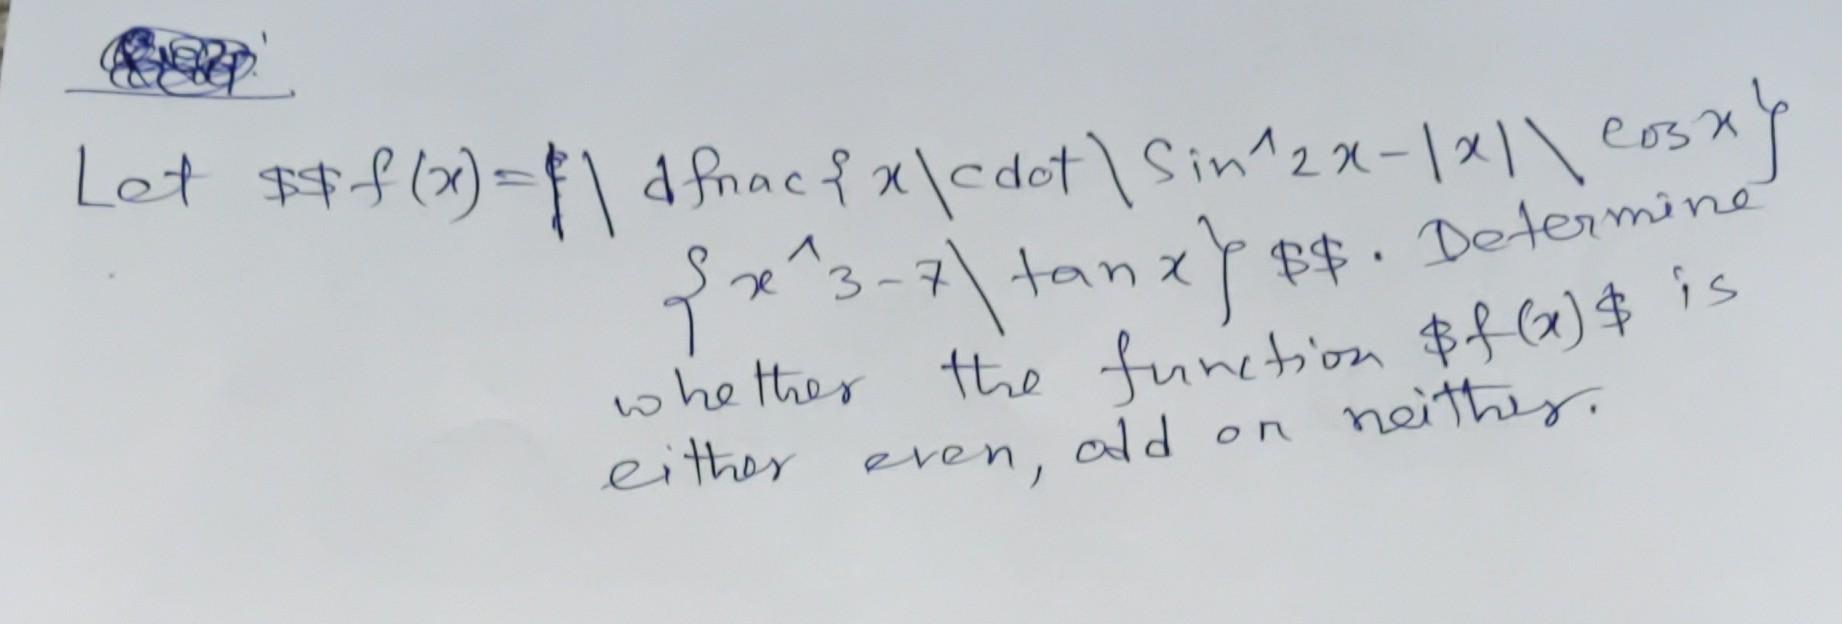 Let $$f(x)=\dfrac{x\cdot\Sin^2x-|x|\cosx}
{x^3-7\tanx}$$. Determine
whether the function $f(x)$ is
either even, odd or neither.